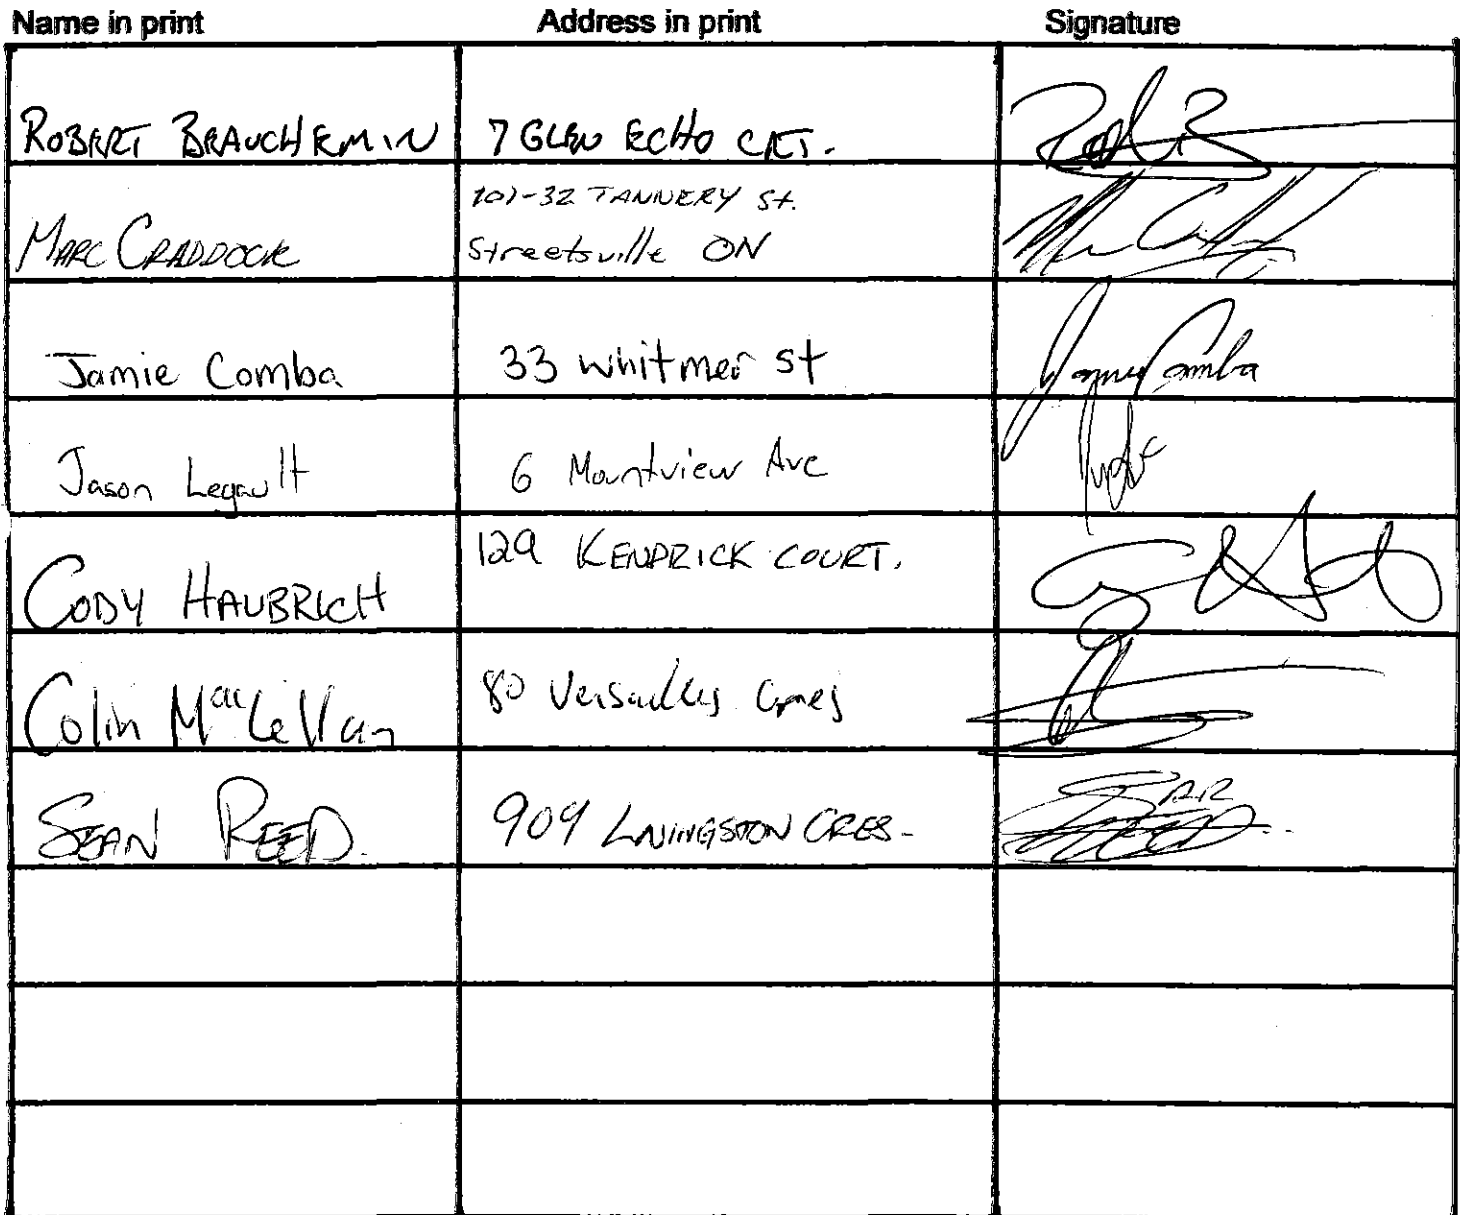 Name in print Address in print Signature
ROBERT BRAUCHEMIN 7 GLEN ECHO CRT.
101-32 TANNERY St.
MARC CRADDOCK Streetsville ON
Jamie Comba 33 Whitmer St Jamie Comba
Jason Legault 6 Mountview Ave
CODY HAUBRICH 129 KENDRICK COURT.
Colin MacLellan 80 Versailles Cres
SEAN REED. 909 LIVINGSTON CRES.